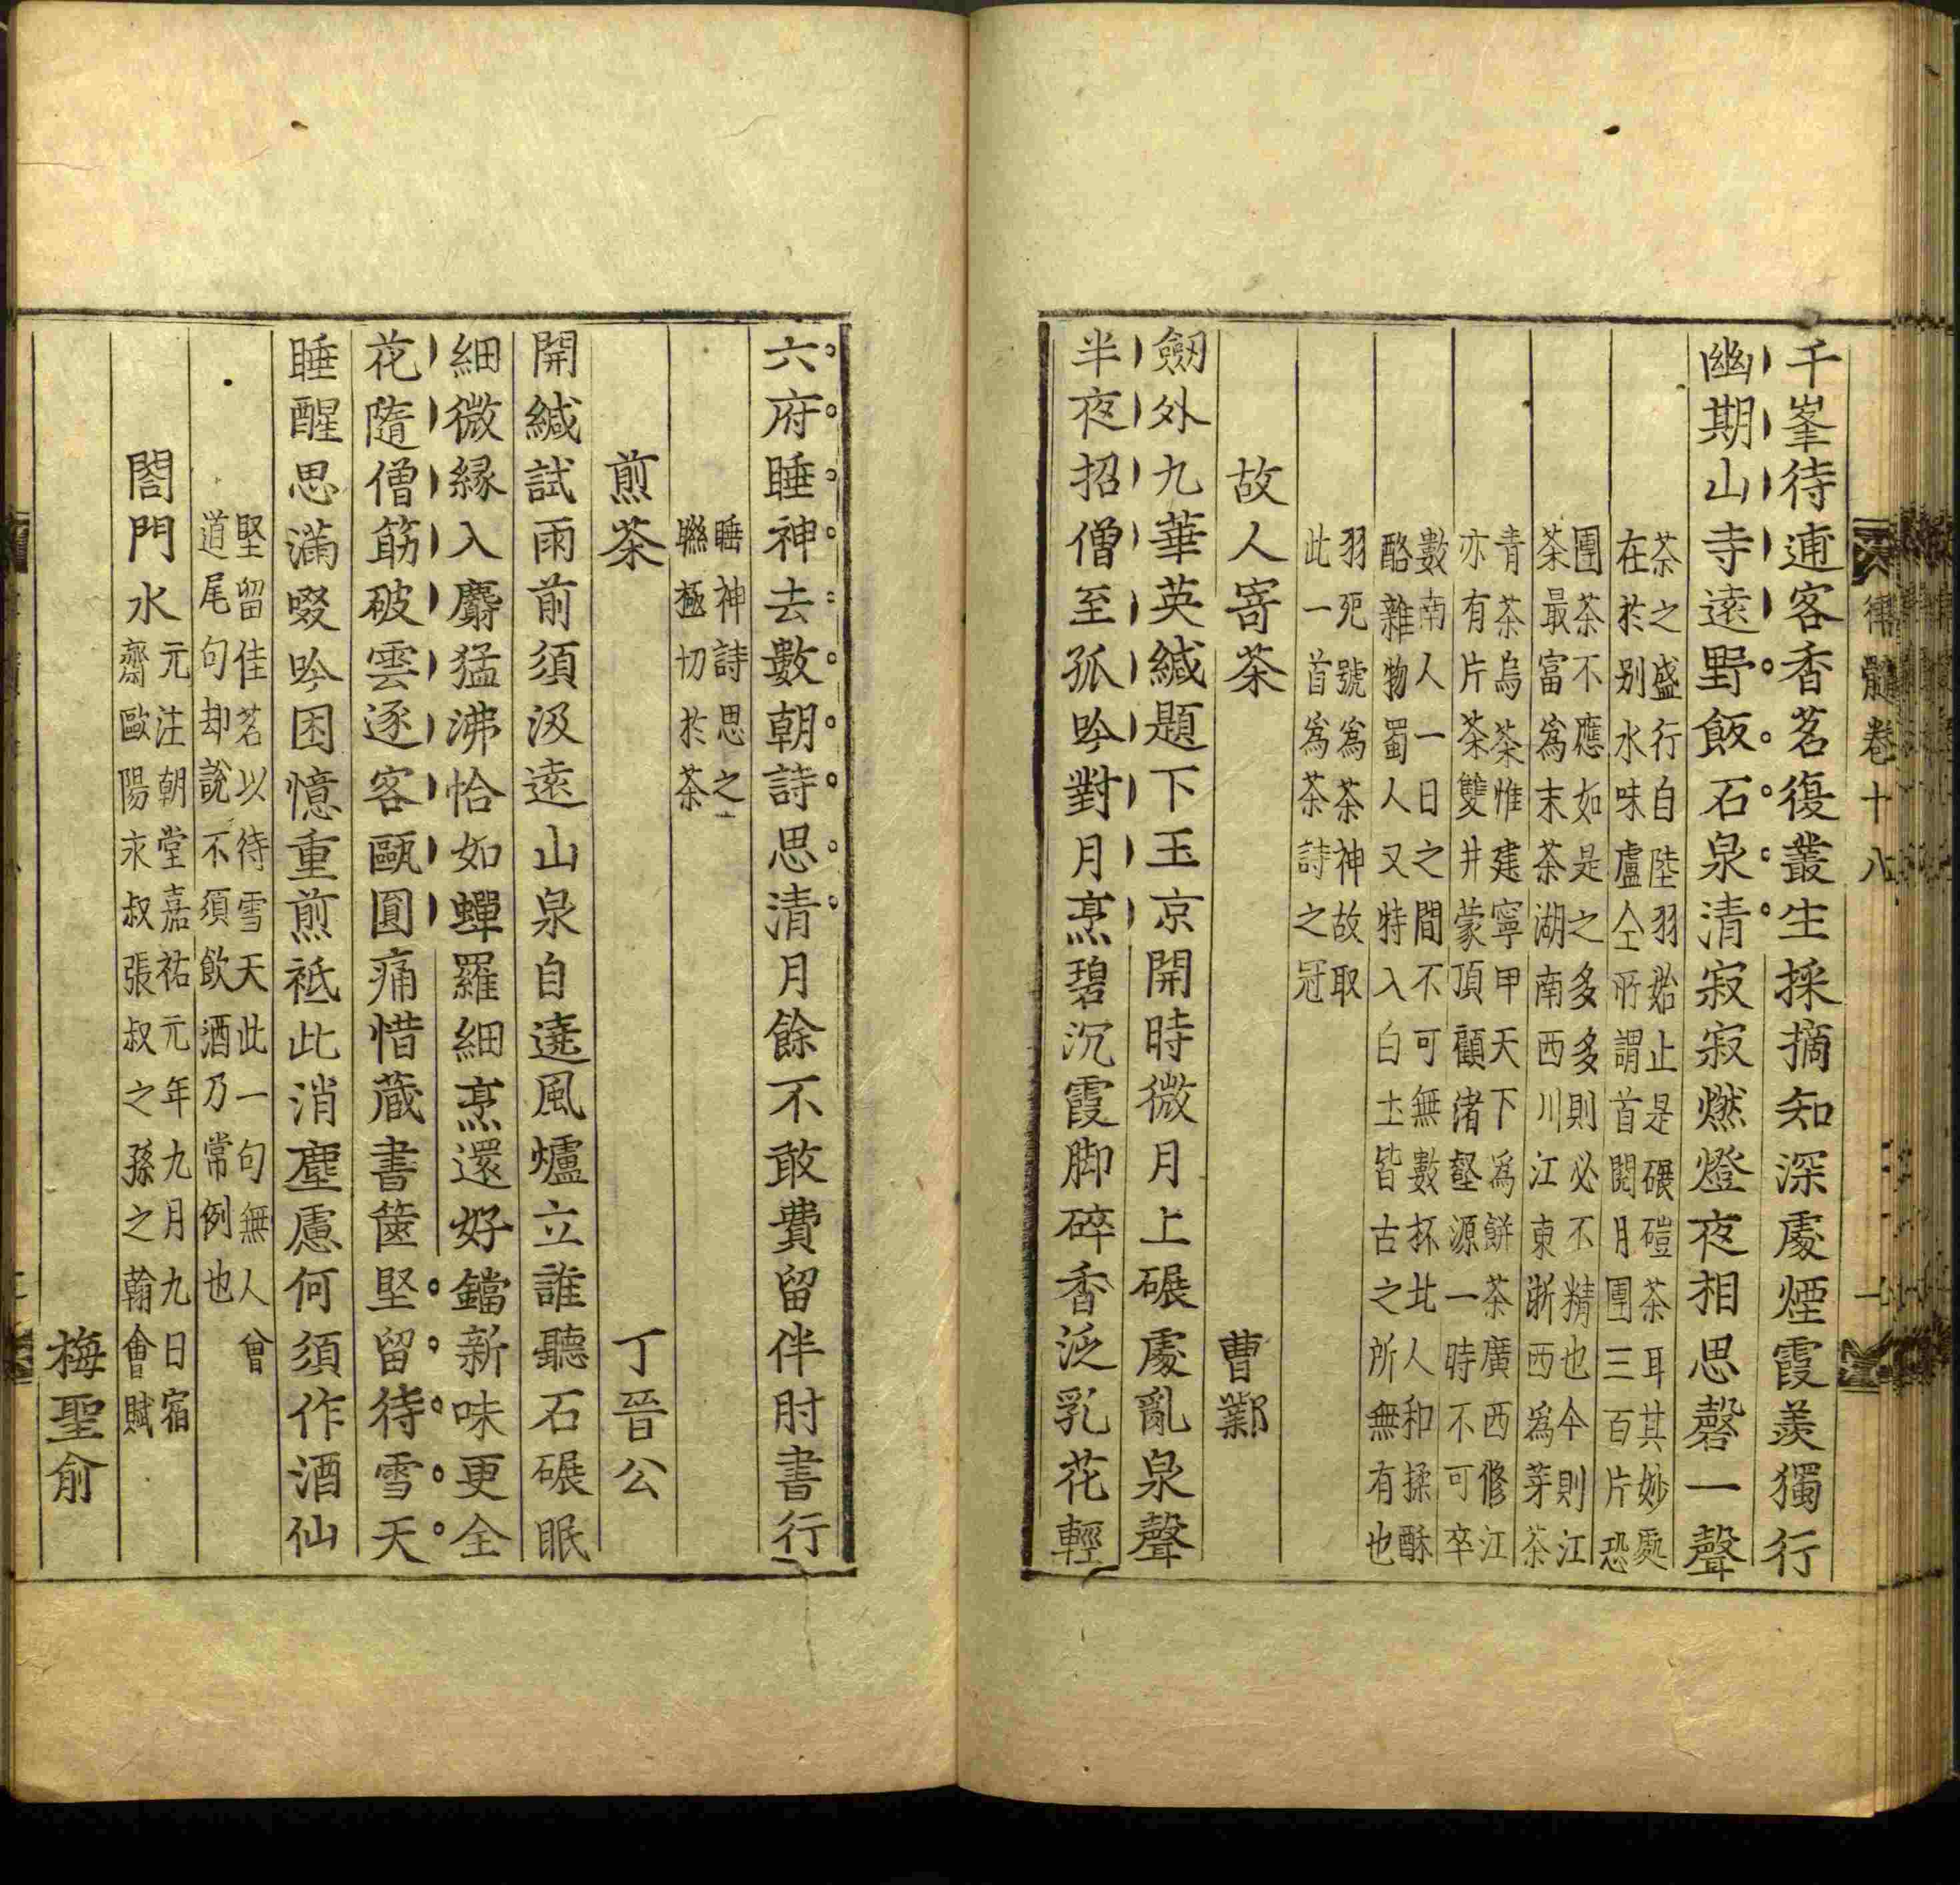 律髓卷十八
一
千峯待逋客香茗復叢生採摘知深處煙霞羨獨行
幽期山寺遠野飯石泉清寂寂燃燈夜相思磬一聲
茶之盛行自陸羽始止是碾磑茶耳其妙處
在於别水味盧仝所謂首閱月團三百片恐
團茶不應如是之多多則必不精也今則江
茶最富為末茶湖南西川江東浙西為芽茶
青茶烏茶惟建寧甲天下為餅茶廣西修江
亦有片茶雙井蒙頂顧渚壑源一時不可卒
數南人一日之間不可無數杯北人和揉酥
酪雜物蜀人又特入白土皆古之所無有也
羽死號為茶神故取
此一首為茶詩之冠
故人寄茶 曹鄴
劒外九華英緘題下玉京開時微月上碾處亂泉聲
半夜招僧至孤吟對月烹碧沉霞脚碎香泛乳花輕
六府睡神去數朝詩思清月餘不敢費留伴肘書行
睡神詩思之
聮極切於茶
煎茶 丁晉公
開緘試雨前須汲遠山泉自遶風爐立誰聽石碾眠
細微縁入麝猛沸恰如蟬羅細烹還好鐺新味更全
花隨僧筯破雲逐客甌圓痛惜藏書篋堅留待雪天
睡醒思滿啜吟困憶重煎祗此消塵慮何須作酒仙
堅留佳茗以待雪天此一句無人曾
道尾句却說不須飲酒乃常例也
閤門水 元注朝堂嘉祐元年九月九日宿
齋歐陽永叔張叔之孫之翰會賦
梅聖俞